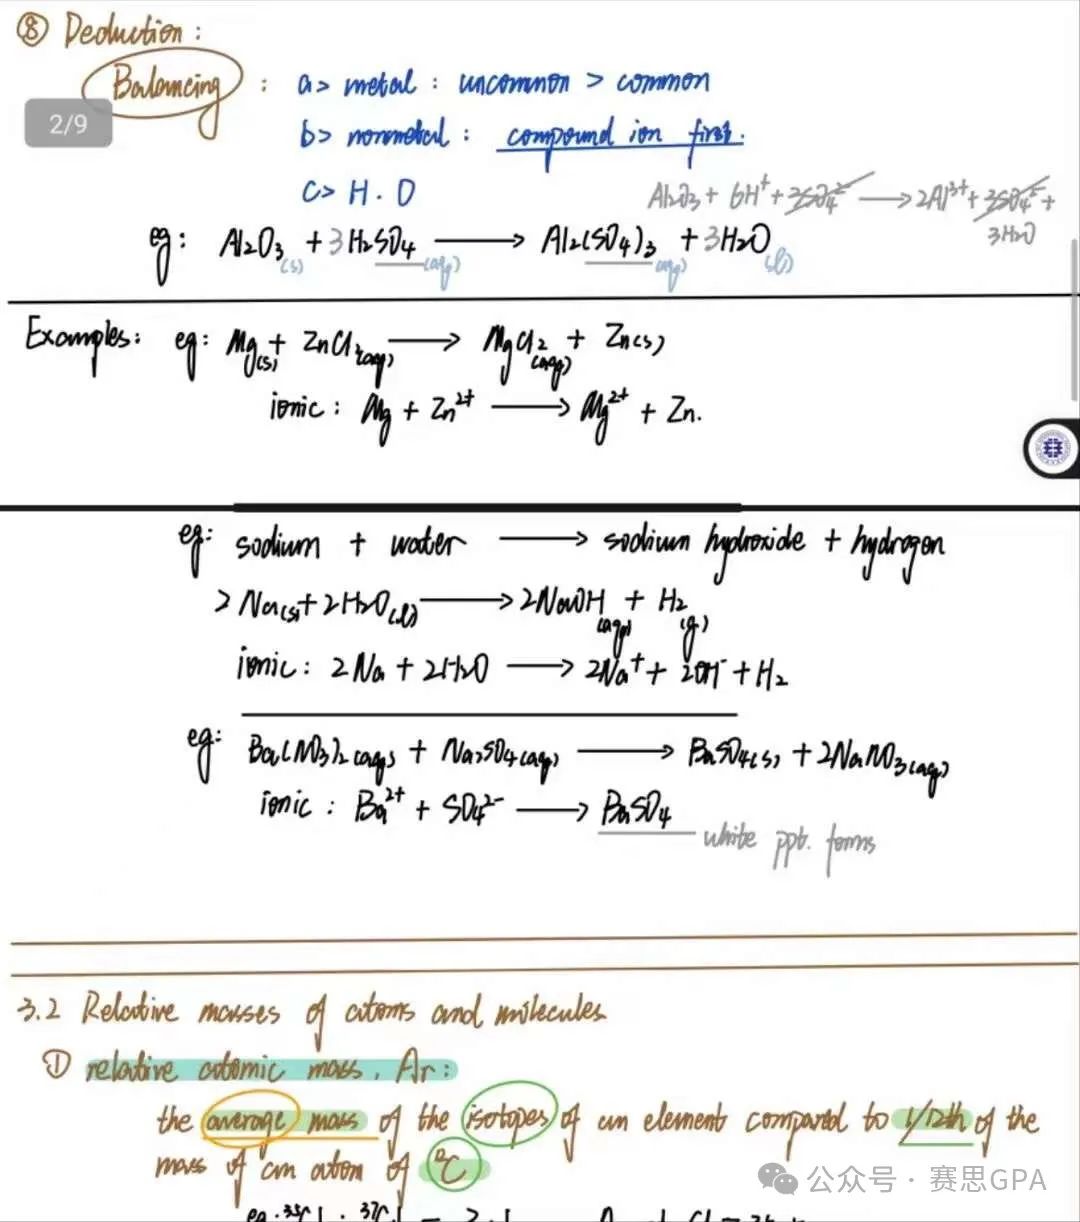 ⑧ Deduction :
Balancing : a> metal : uncommon > common
2/9
b> nonmetal : compound ion first.
c> H . O
Al2O3 + 6H⁺ + 3SO4²⁻ → 2Al³⁺ + 3SO4²⁻ + 3H2O
eg: Al2O3(s) + 3H2SO4(aq) → Al2(SO4)3(aq) + 3H2O(l)
Examples: eg: Mg(s) + ZnCl2(aq) → MgCl2(aq) + Zn(s)
ionic : Mg + Zn²⁺ → Mg²⁺ + Zn.
eg: sodium + water → sodium hydroxide + hydrogen
2Na(s) + 2H2O(l) → 2NaOH(aq) + H2(g)
ionic : 2Na + 2H2O → 2Na⁺ + 2OH⁻ + H2
eg: Ba(NO3)2(aq) + Na2SO4(aq) → BaSO4(s) + 2NaNO3(aq)
ionic : Ba²⁺ + SO4²⁻ → BaSO4
white ppt. forms
3.2 Relative masses of atoms and molecules
① relative atomic mass, Ar :
the average mass of the isotopes of an element compared to 1/12th of the
mass of an atom of ¹²C
公众号 · 赛思GPA